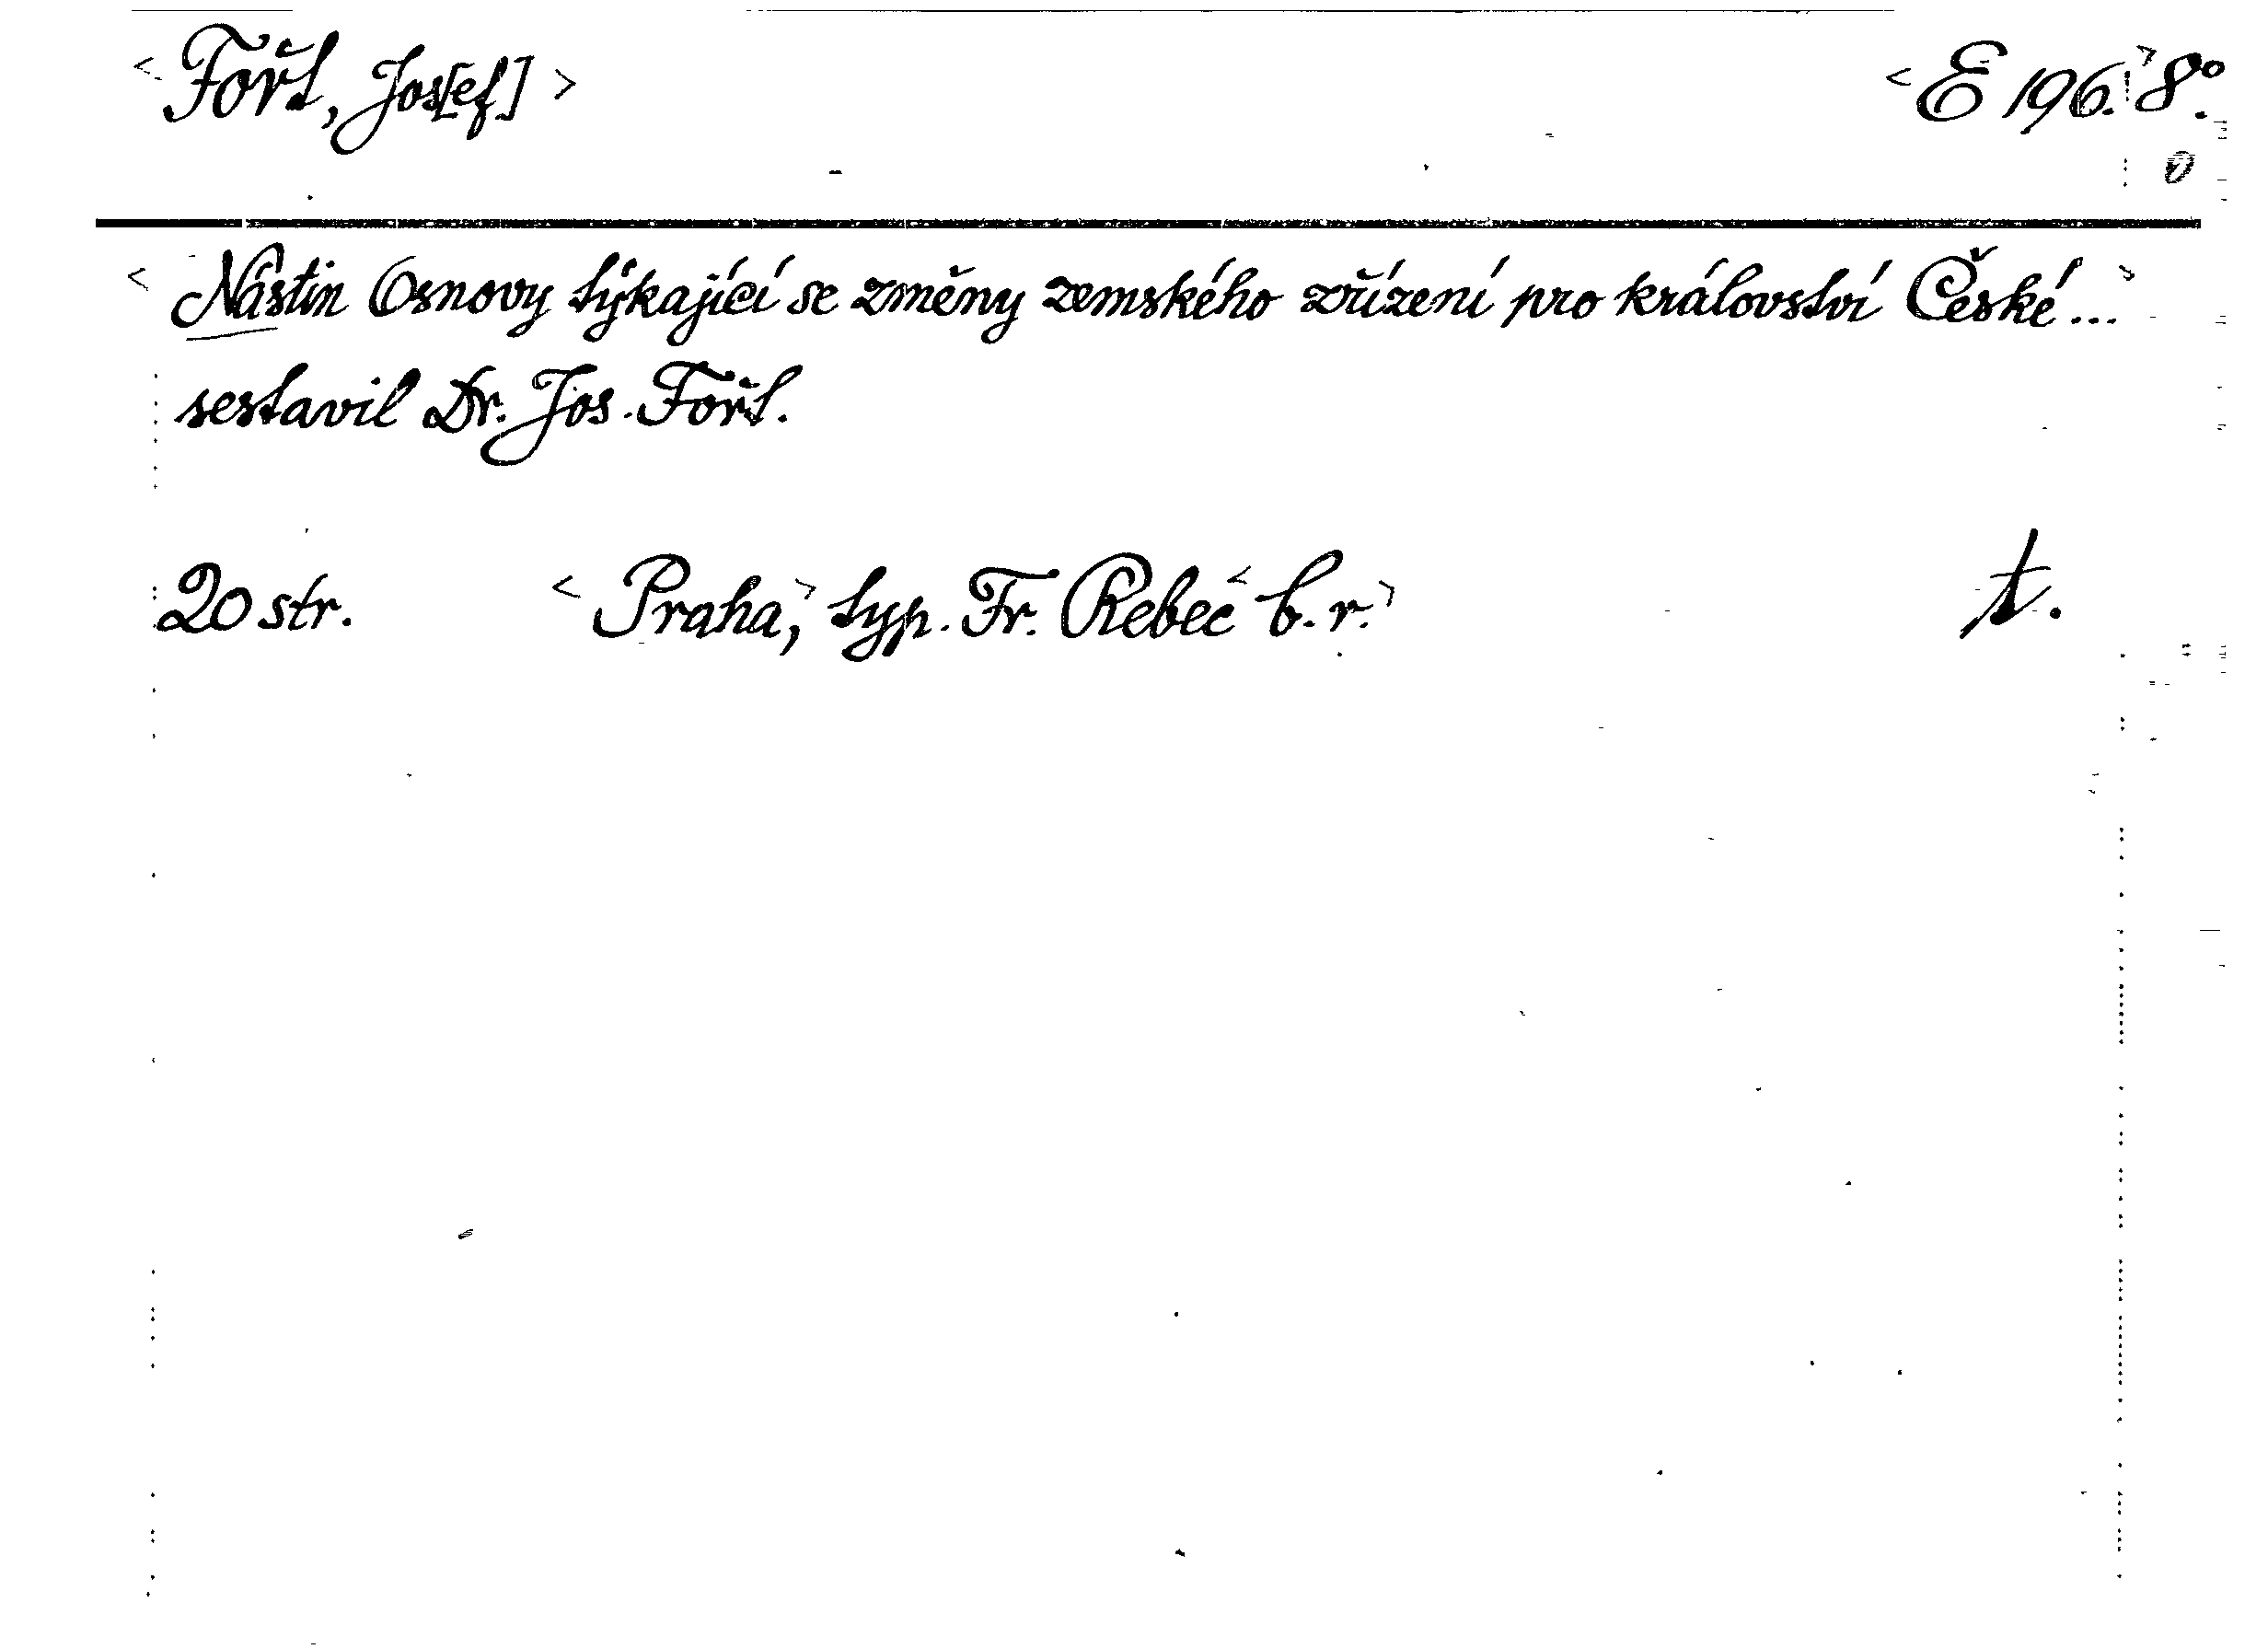 <Fořt, Jos[ef]> <E 196.> 8°.
<Nástin Osnovy týkající se změny zemského zřízení pro království České...>
sestavil Dr. Jos. Fořt.
20 str. <Praha,> typ. Fr. Rebec <b.r.> t.